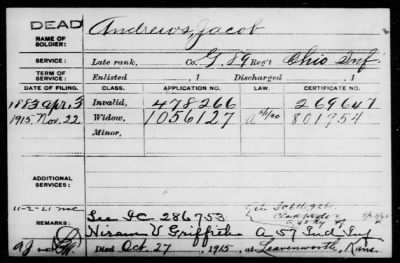 DEAD
NAME OF SOLDIER:
Andrews, Jacob
SERVICE:
Late rank, Co. G, 89 Reg't Ohio Inf.
TERM OF SERVICE:
Enlisted , 1 Discharged , 1
DATE OF FILING. CLASS. APPLICATION NO. CERTIFICATE NO.
1883 Apr. 3 Invalid, 478266 269647
1915, Nov. 22 Widow, 1056127 801954
Minor,
ADDITIONAL SERVICES:
REMARKS:
See I C. 286753
Hiram V Griffith A 57 Ind Inf
Died Oct. 27, 1915, at Leavenworth, Kans.